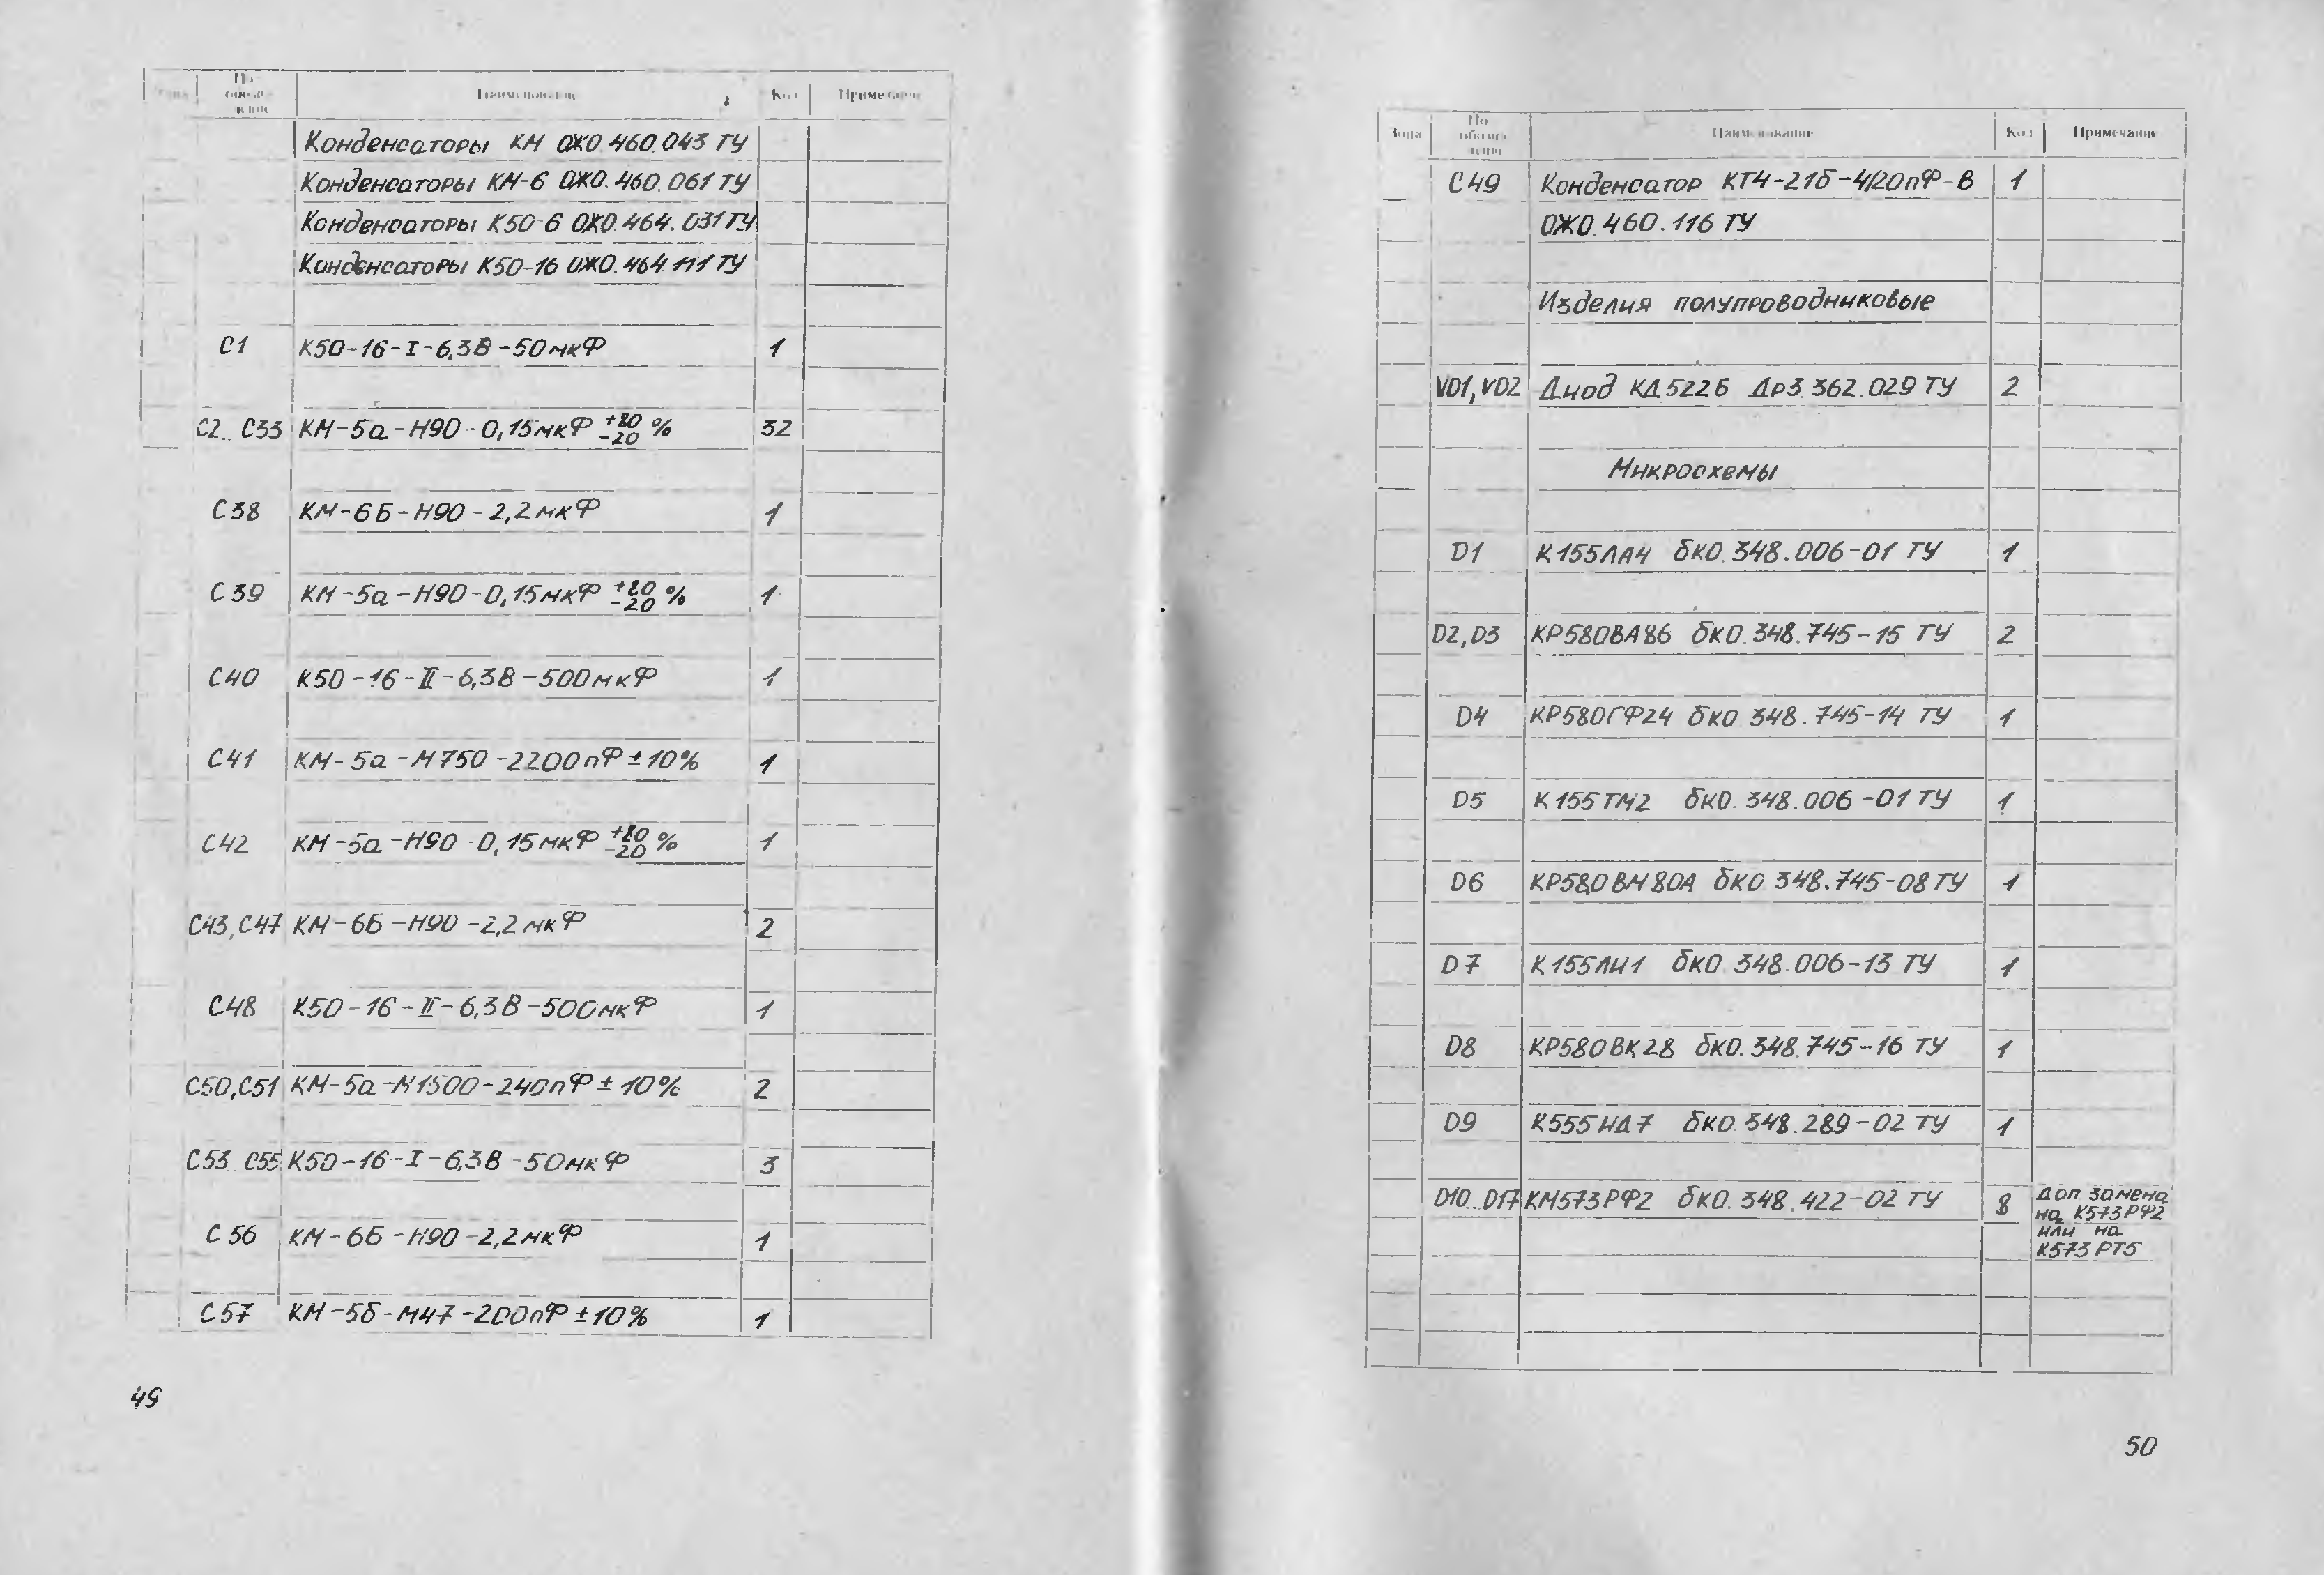 Зона По обозначение Наименование Кол Примечание
Конденсаторы КМ ОЖО.460.043 ТУ
Конденсаторы КМ-6 ОЖО.460.061 ТУ
Конденсаторы К50-6 ОЖО.464.031 ТУ
Конденсаторы К50-16 ОЖО.464.111 ТУ
С1 К50-16-I-6,3В-50мкФ 1
С2..С33 КМ-5а-Н90-0,15мкФ +80 -20 % 32
С38 КМ-6Б-Н90-2,2мкФ 1
С39 КМ-5а-Н90-0,15мкФ +80 -20 % 1
С40 К50-16-II-6,3В-500мкФ 1
С41 КМ-5а-М750-2200пФ±10% 1
С42 КМ-5а-Н90-0,15мкФ +80 -20 % 1
С43,С47 КМ-6Б-Н90-2,2мкФ 2
С48 К50-16-II-6,3В-500мкФ 1
С50,С51 КМ-5а-М1500-240пФ±10% 2
С53..С55 К50-16-I-6,3В-50мкФ 3
С56 КМ-6Б-Н90-2,2мкФ 1
С57 КМ-5б-М47-200пФ±10% 1
49
Зона По обозначение Наименование Кол Примечание
С49 Конденсатор КТ4-21б-4/20пФ-В 1
ОЖО.460.116 ТУ
Изделия полупроводниковые
VD1,VD2 Диод КД522Б Др3.362.029 ТУ 2
Микросхемы
D1 К155ЛА4 бКО.348.006-01 ТУ 1
D2,D3 КР580ВА86 бКО.348.745-15 ТУ 2
D4 КР580ГФ24 бКО.348.745-14 ТУ 1
D5 К155ТМ2 бКО.348.006-01 ТУ 1
D6 КР580ВМ80А бКО.348.745-08 ТУ 1
D7 К155ЛИ1 бКО.348.006-13 ТУ 1
D8 КР580ВК28 бКО.348.745-16 ТУ 1
D9 К555ИД7 бКО.348.289-02 ТУ 1
D10..D17 КМ573РФ2 бКО.348.422-02 ТУ 8 Доп. замена
на К573РФ2
или на
К573РТ5
50